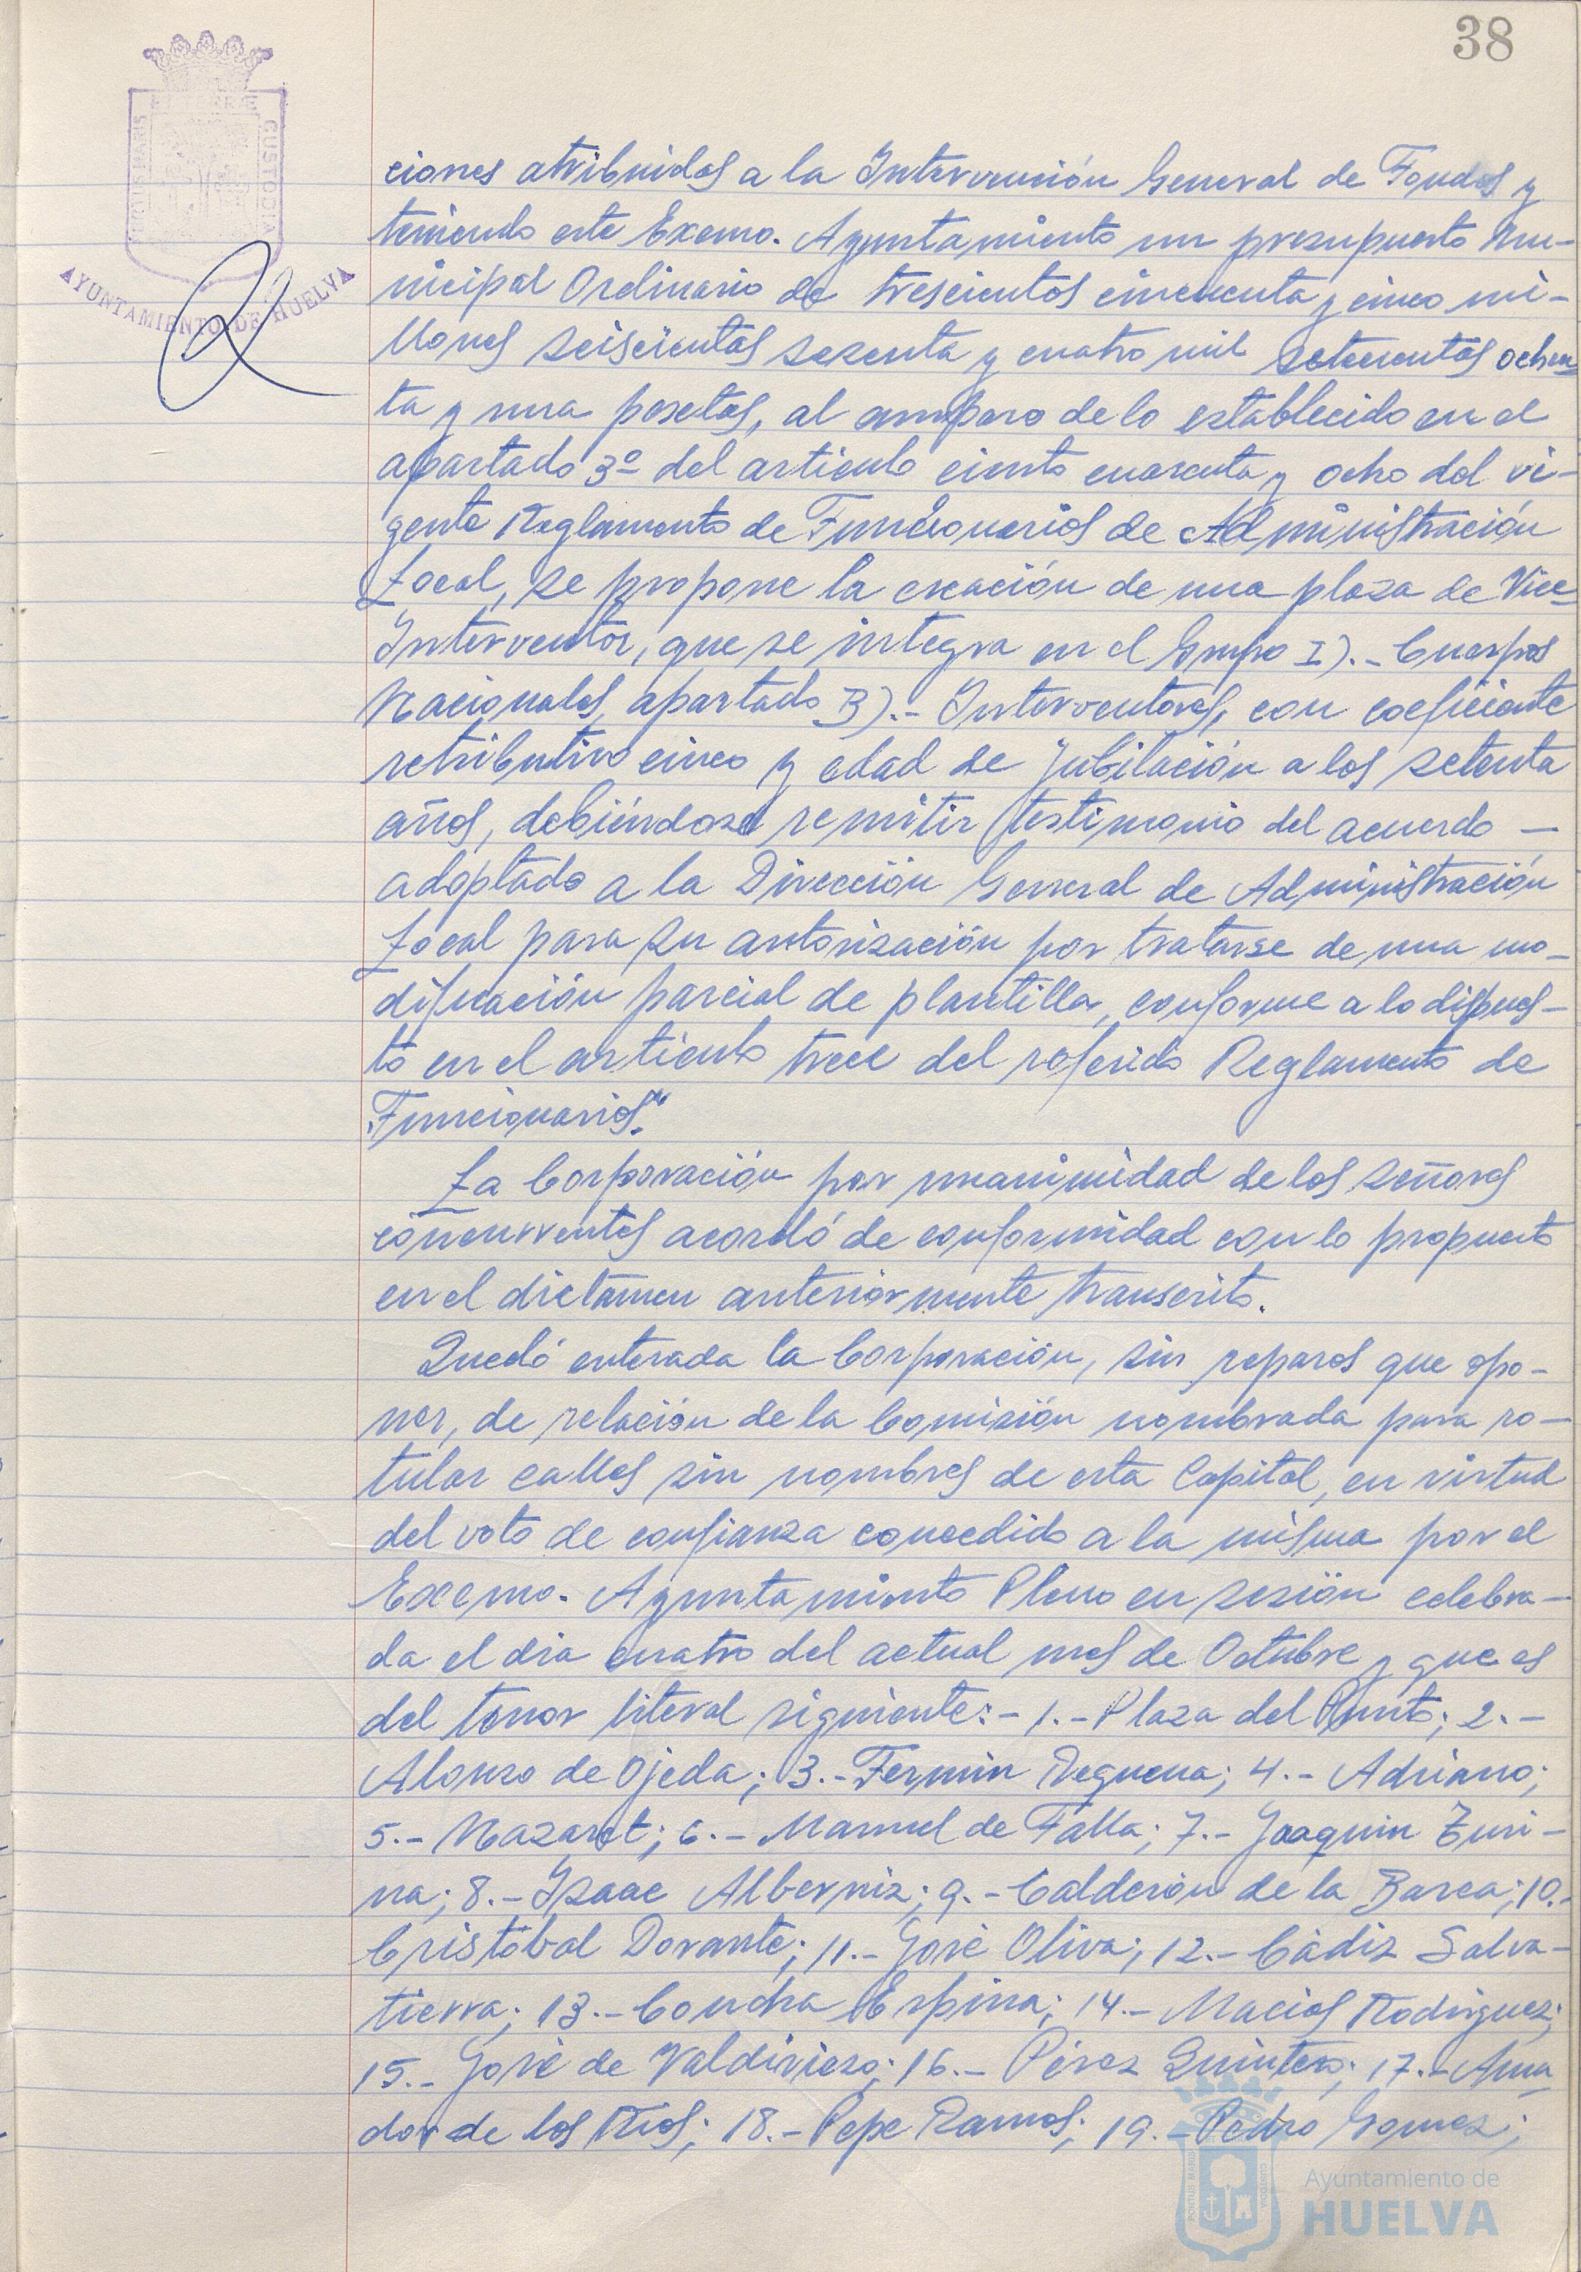 38
PORTUS MARIS
ET TERRÆ
CUSTODIA
AYUNTAMIENTO DE HUELVA
ciones atribuidas a la Intervención General de Fondos y
teniendo este Excmo. Ayuntamiento un presupuesto Mu-
nicipal Ordinario de trescientos cincuenta y cinco mi-
llones seiscientas sesenta y cuatro mil setecientas ochen-
ta y una pesetas, al amparo de lo establecido en el
apartado 3º del articulo ciento cuarenta y ocho del vi-
gente Reglamento de Funcionarios de Administración
Local, se propone la creación de una plaza de Vice-
Interventor, que se integra en el Grupo I).- Cuerpos
Nacionales, apartado B).- Interventores, con coeficiente
retributivo cinco y edad de jubilación a los setenta
años, debiéndose remitir testimonio del acuerdo —
adoptado a la Dirección General de Administración
Local para su autorización por tratarse de una mo-
dificación parcial de plantilla, conforme a lo dispues-
to en el articulo trece del referido Reglamento de
Funcionarios".
La Corporación por unanimidad de los señores
concurrentes acordó de conformidad con lo propuesto
en el dictamen anteriormente transcrito.
Quedó enterada la Corporación, sin reparos que opo-
ner, de relación de la Comisión nombrada para ro-
tular calles sin nombres de esta Capital, en virtud
del voto de confianza concedido a la misma por el
Excmo. Ayuntamiento Pleno en sesión celebra-
da el dia cuatro del actual mes de Octubre y que es
del tenor literal siguiente:- 1.- Plaza del Punto; 2.-
Alonso de Ojeda; 3.- Fermin Requena; 4.- Adriano;
5.- Nazaret; 6.- Manuel de Falla; 7.- Joaquin Turi-
na; 8.- Isaac Alberniz; 9.- Calderón de la Barca; 10.-
Cristóbal Dorante; 11.- José Oliva; 12.- Cádiz Salva-
tierra; 13.- Concha Espina; 14.- Macias Rodriguez;
15.- José de Valdivieso; 16.- Pérez Quintero; 17.- Ama-
dor de los Rios; 18.- Pepe Ramos; 19.- Pedro Gomez;
Ayuntamiento de
HUELVA